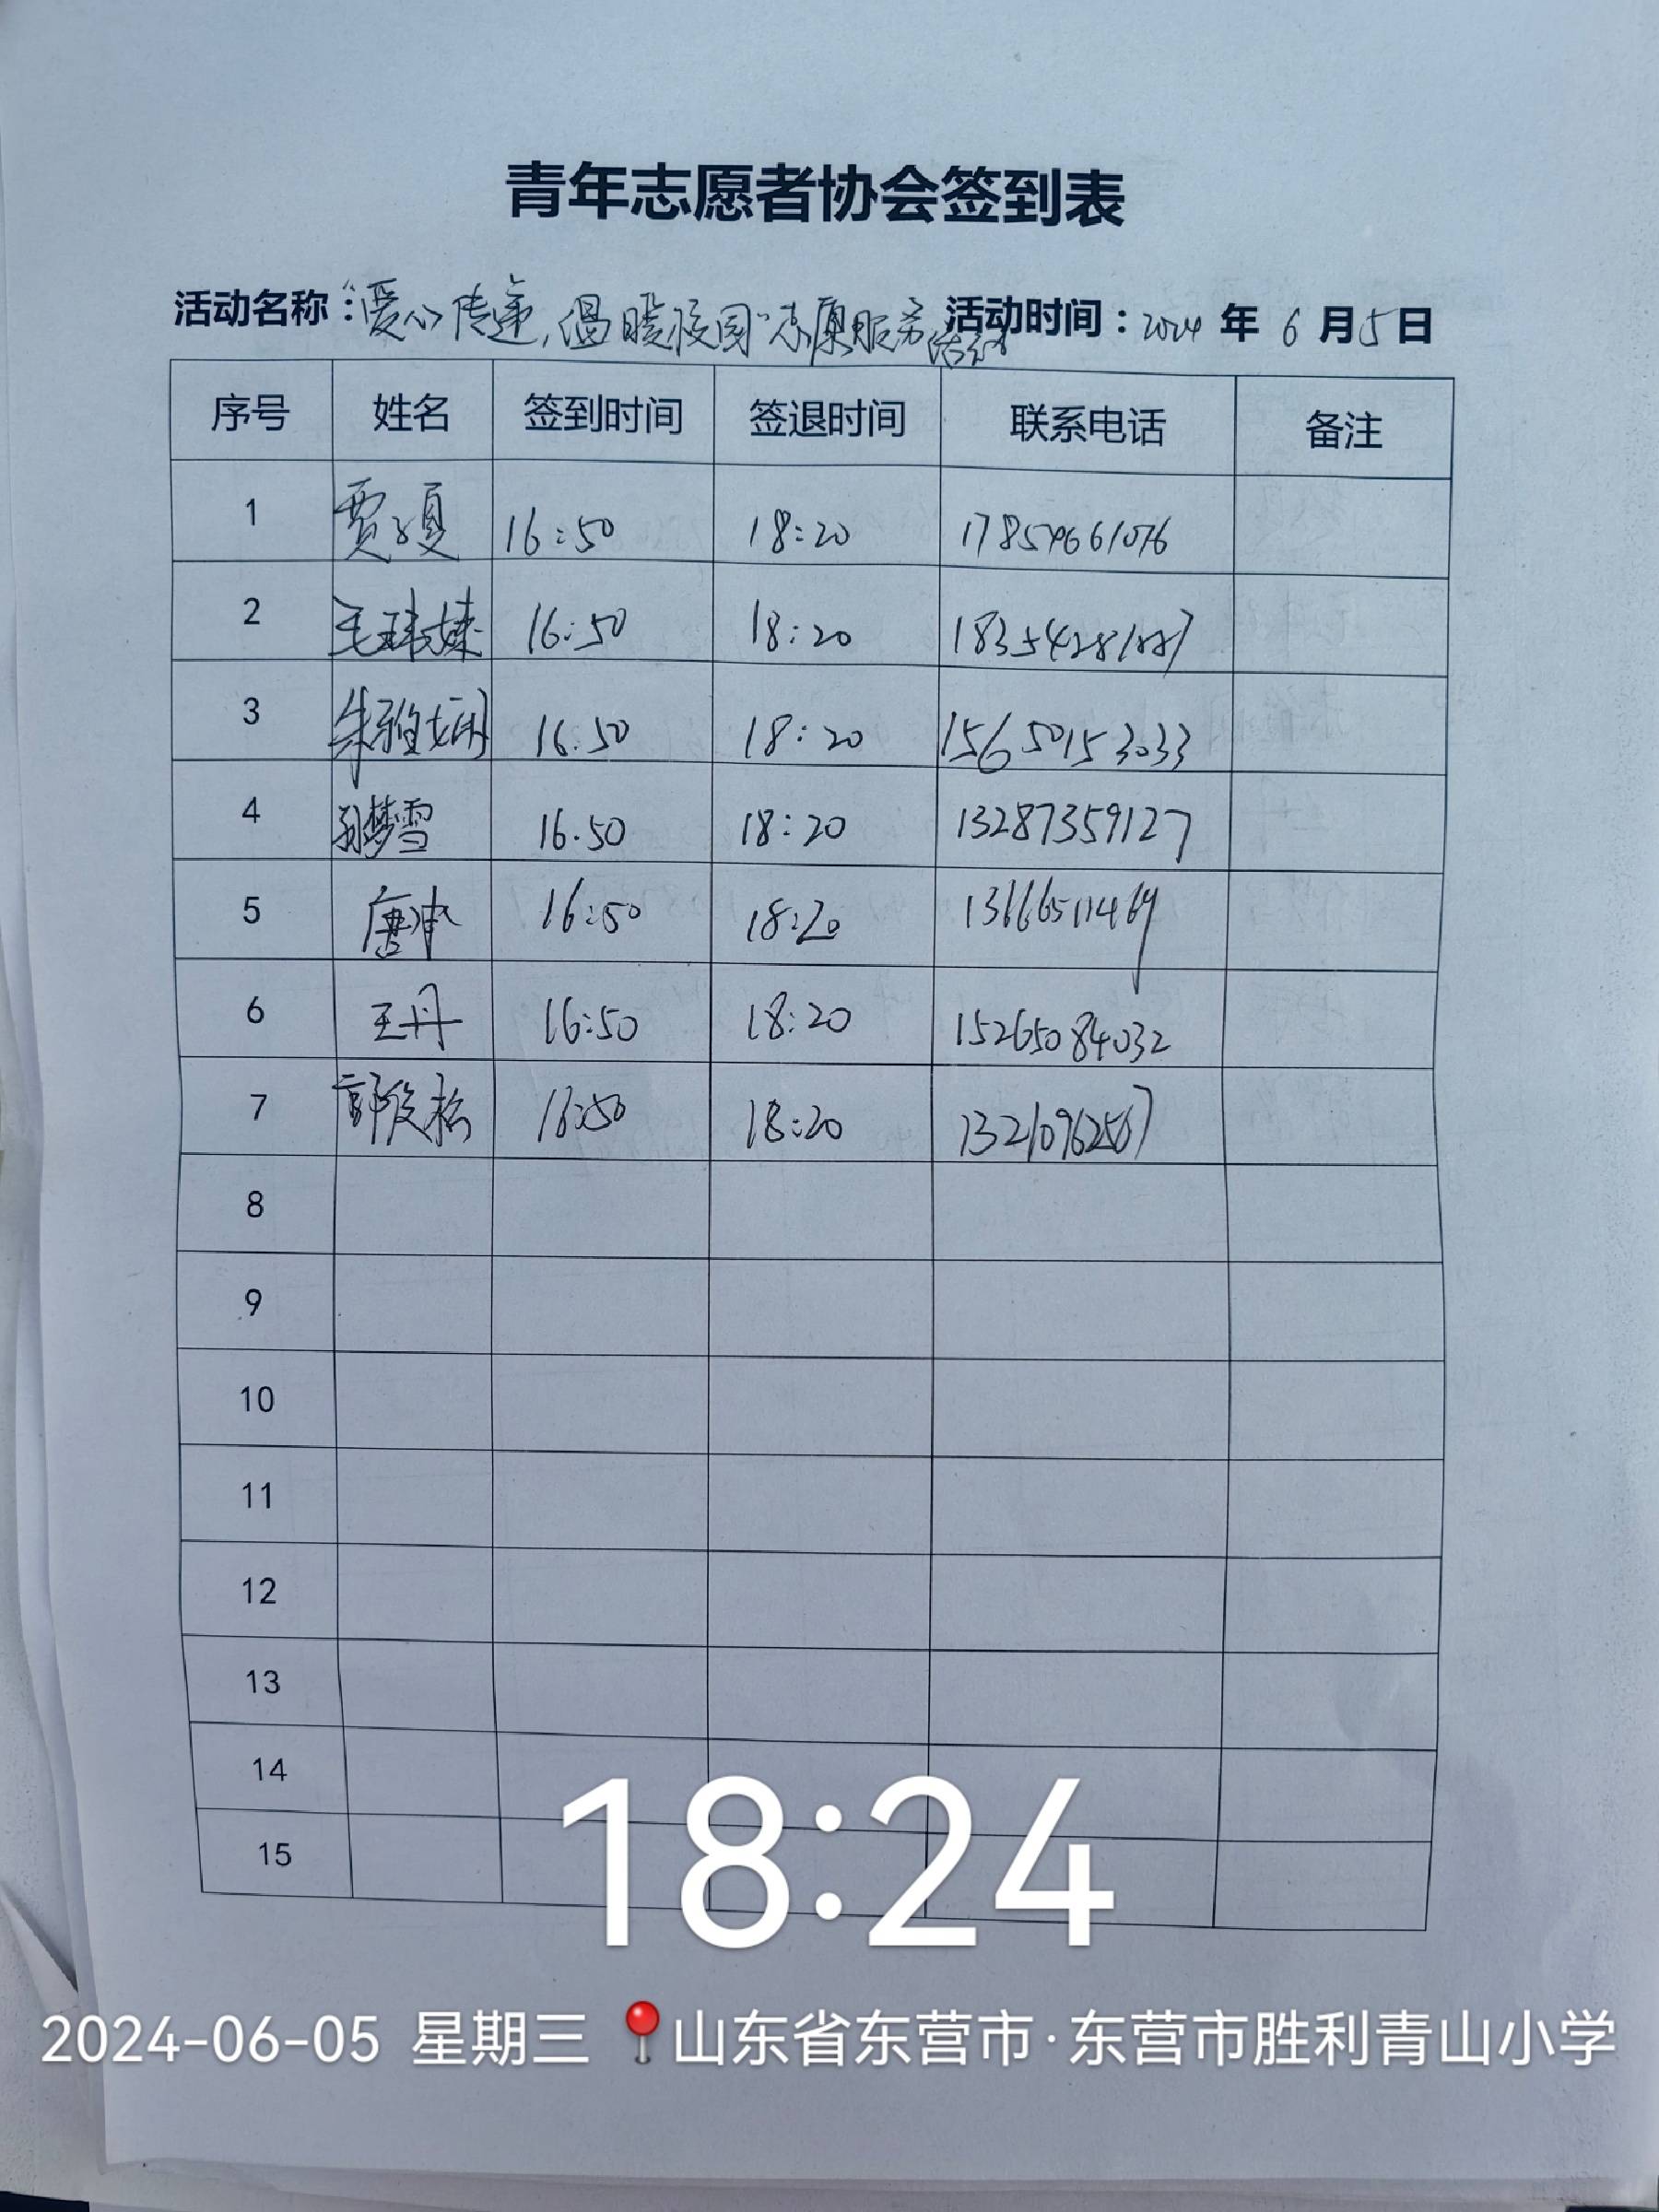 青年志愿者协会签到表
活动名称：“爱心传递，温暖校园”志愿服务活动 活动时间：2024 年 6 月 5 日
序号 姓名 签到时间 签退时间 联系电话 备注
1 贾夏 16:50 18:20
2 18:20 16:50
3 朱雅娴 16.50 18:20 15650153033
4 孙梦雪 16.50 18:20 13287359127
5 唐 16:50 18:20
6 王丹 16:50 18:20 15265084032
7 郭俊松 16:50 18:20
8
9
10
11
12
13
14
15
18:24
2024-06-05 星期三 山东省东营市·东营市胜利青山小学